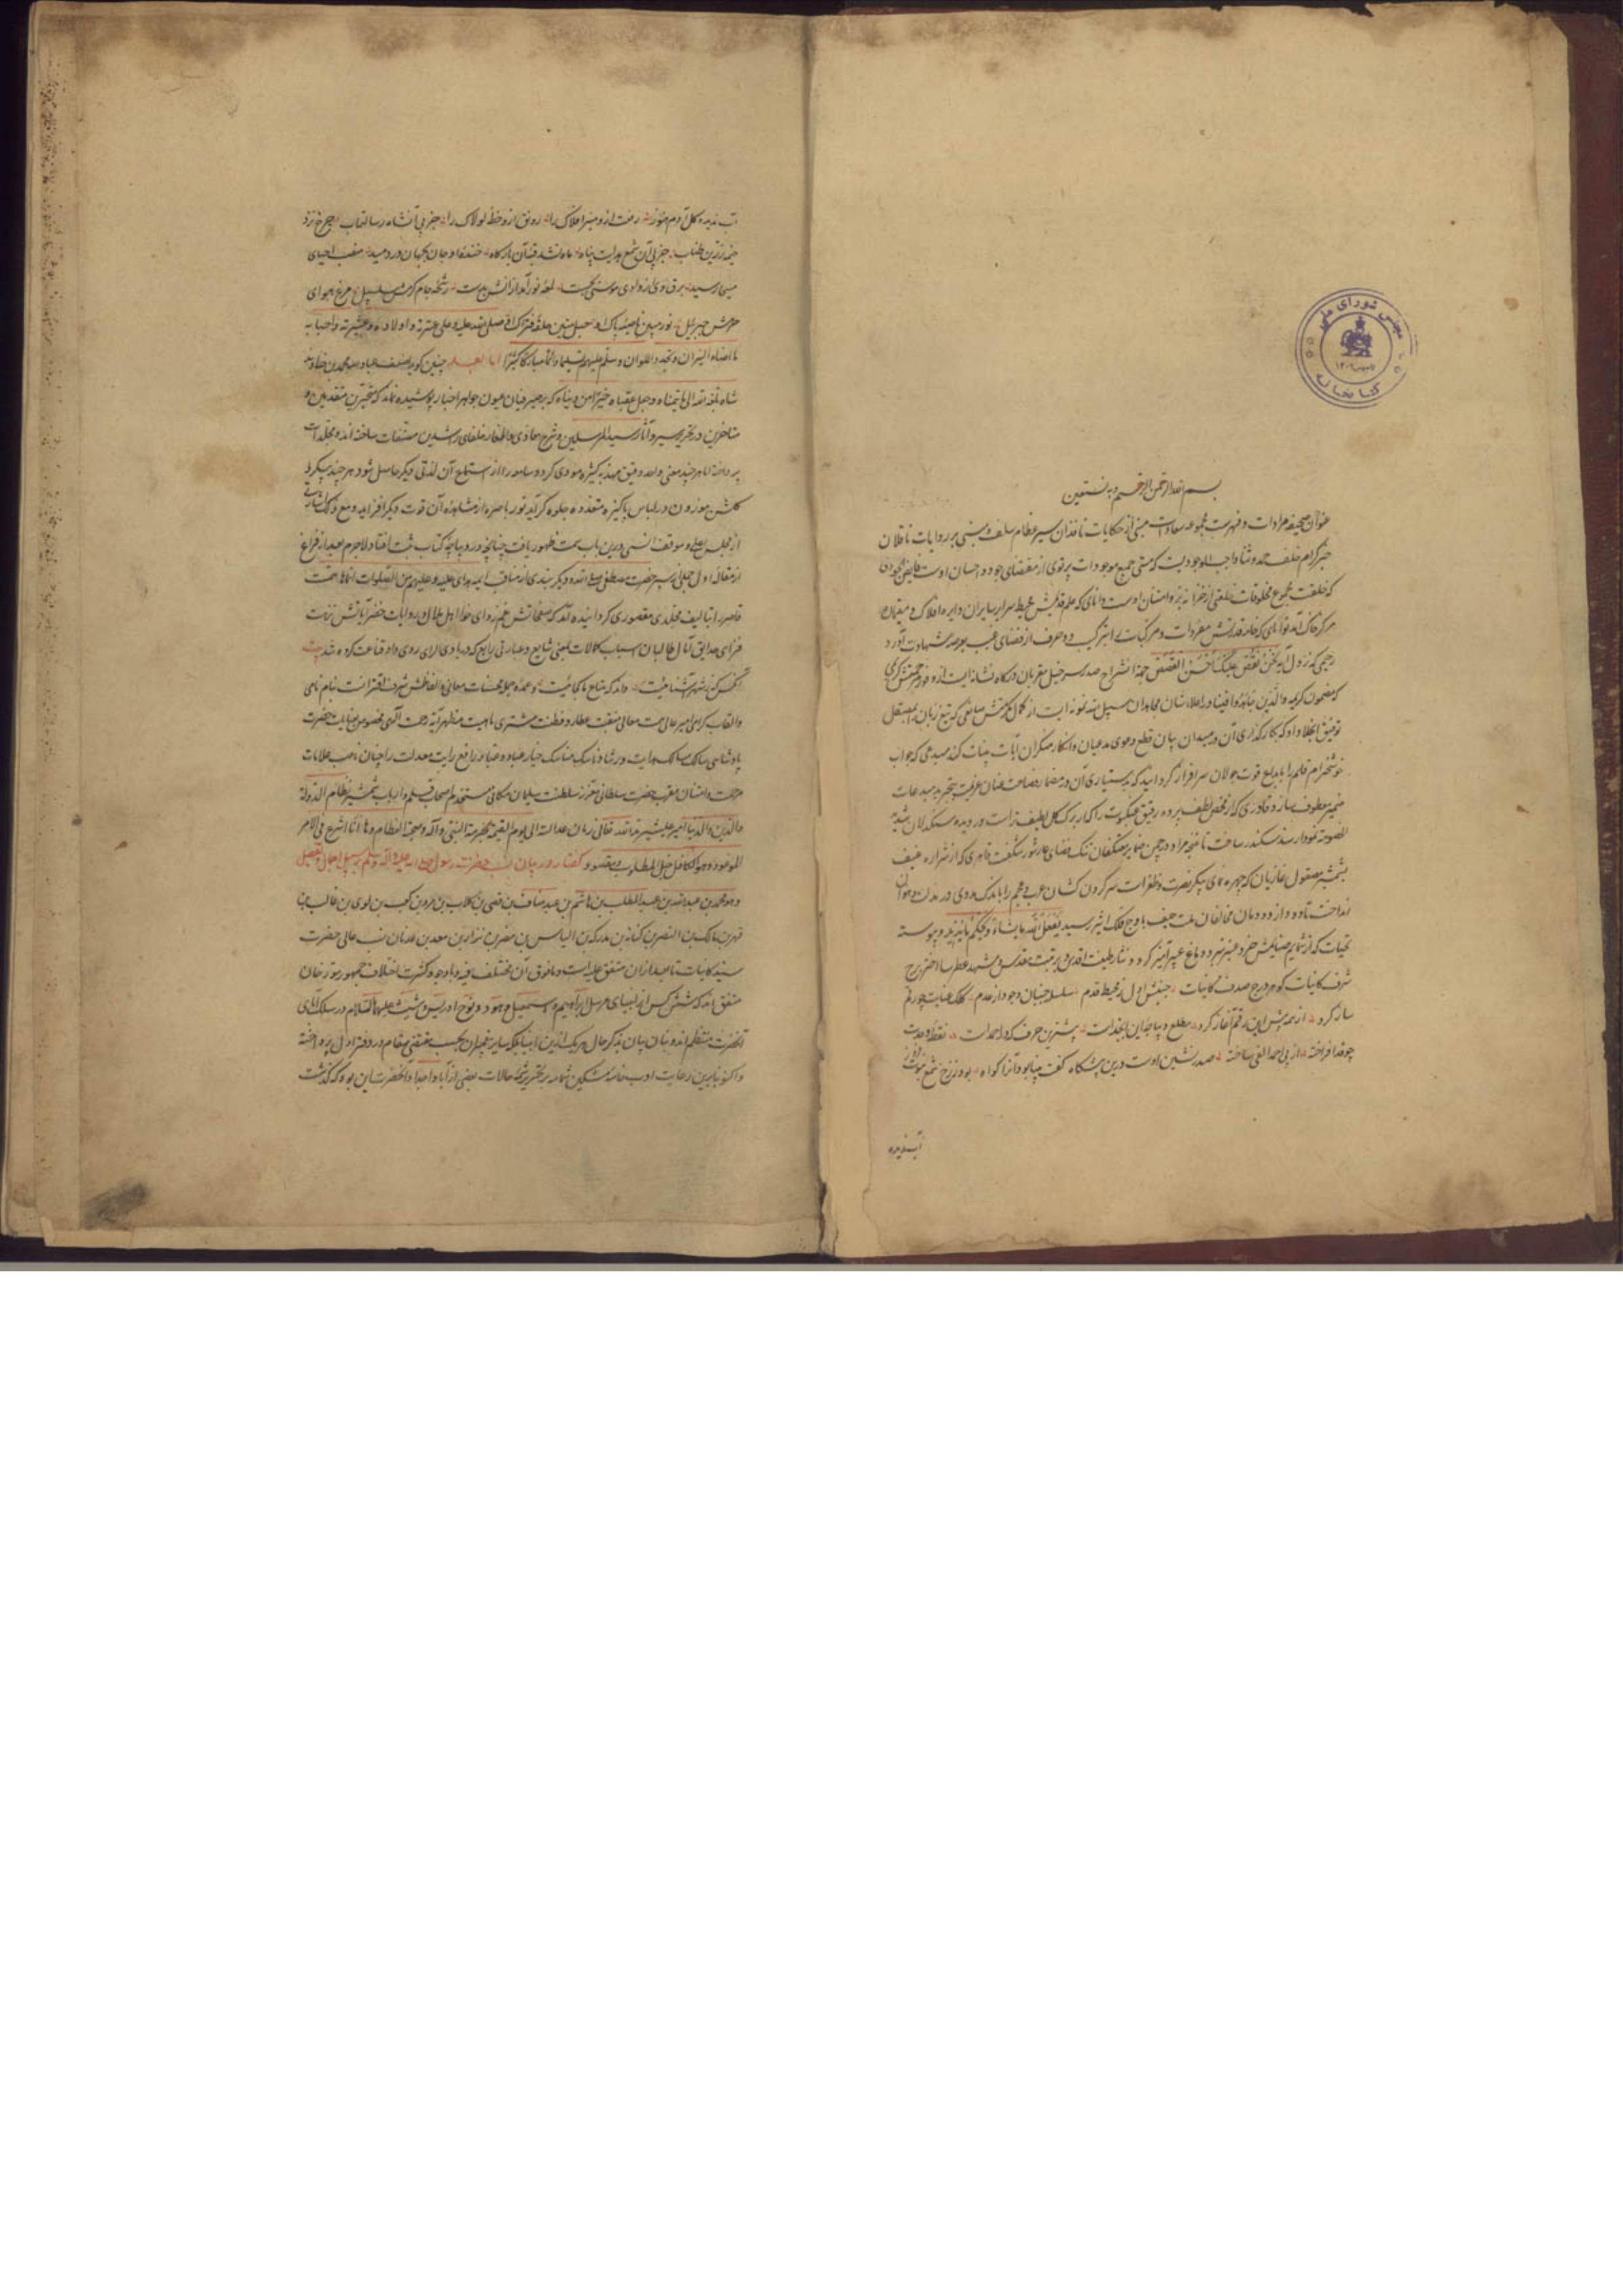 مجلس شورای ملی
کتابخانه
بسم الله الرحمن الرحیم و به نستعین
عنوان صحیفه مرادات و فهرست مجموعه سعادات مبتنی از حکایات ناقدان سیر عظام سلف و مبنی بر روایات ناقلان
خبر کرام خلف حمد و ثنا واجب الوجودیست که هستی جمیع موجودات پرتوی از مقتضای جود و احسان اوست
که خلقت مجموع مخلوقات از خزانه بر و امتنان اوست دانای که علم قدیمش محیط سرایر سایران دایره افلاک و مقیمان
مرکز خاک آمد توانای که قدرتش مفردات و مرکبات را بترکیب دو حرف از فضای غیب بعرصه شهادت آورد
رحیمی که نزول آیه نحن نقص علیک احسن القصص جهة انشراح صدر سرخیل مقربان درگاه نشانه ایست از وفور مرحمتش کریمی
که مضمون کریمه والذین جاهدوا فینا در اعلاء شان مجاهدان سبیل الله نمونه ایست از کمال مکرمتش که تیغ زبان را بمصقل
توفیق انجلا داد که بکارگذاری آن در میدان بیان قطع دعوی مدعیان و انکار منکران آیات بینات کند مبدعی که جواب
خوشخرام قلم را بابداع قوت جولان سرافراز گردانید که بدستیاری آن در مضمار فصاحت عنان عزیمت بتحریر مبدعات
ضمیر معطوف سازد قادری که از محض لطف پرده رقیق عنکبوت را که از برک کل لطیف تر است در دیده سنکدلان
نمودار سد سکندر ساخت تا غنچه مراد در چمن ضمایر معتکفان تنک فضای غار ثور شکفت قاهری که از شراره عنیف
شمشیر مصقول غازیان که چهره نمای پیکر نصرت و ظفر است سر گردن کشان عرب و عجم را باندک مدتی در مذلت و هوان
انداخت تا دود از دودمان مخالفان ملت حنیف باوج فلک اثیر رسید یفعل الله ما یشاء و یحکم ما یرید و پیوسته
تحیات که از شمایم صفایش خرد عنبر بیز و دماغ عبیر آمیز گردد نثار طینت اقدس و تربت مقدس و مشهد عطرسا اختر برج
شرف کاینات گوهر درج صدف کاینات جنبش اول ز محیط قدم سلسله جنبان وجود از عدم کلک عنایت چو رقم
ساز کرد از همه پیش این رقم آغاز کرد مطلع دیباچه این ابجد است پیشترین حرف که در احمد است نقطه وحدت
چو قد افراخته از پی احمد الفی ساخته صدر نشین اوست درین پیشگاه کنت نبیا بود آنرا گواه بود ز رخ شمع نبوت
آب ندیده
آب ندیده گل آدم هنوز رفعت ازو منبر افلاک را رونق ازو خطه لولاک را جز پی آن شاه رسالتماب چرخ نزد
خیمه زرین طناب جز پی آن شمع هدایت پناه ماه نشد قبه آن بارگاه خنده او جان بجهان در دمید منصب احیای
مسیحا رسید برق وی از وادی موسی بجست لعه نور آمد از آتش بدست رشحه جام کرمش سلسبیل مرغ هوای
حرمش جبرئیل نور مبین ناصیه پاک او حبل متین حلقه فتراک او صلی الله علیه و علی عترته و اولاده و عشیرته و احبابه
ما اضاء النیران و تجدد الملوان و سلم علیهم تسلیما دائما مبارکا کثیرا اما بعد چنین گوید اضعف عباد الله محمد بن خاوند
شاه بلغه الله الی ما یتمناه و جعل عقباه خیرا من دنیاه که بر صیرفیان عیون جواهر اخبار پوشیده نماند که متبحرین متقدمین و
متاخرین در تحریر سیر و آثار سید المرسلین و شرح مغازی و اخبار خلفای راشدین مصنفات ساخته اند و مجلدات
پرداخته اما هر چند معنی واحد دقیق بعبارت کثیره مودی گردد سامعه را از استماع آن لذتی دیگر حاصل شود هر چند پیکر
گلشن موزون در لباس پاکیزه متعدده جلوه گر آید نور باصره از مشاهده آن قوت دیگر افزاید و مع ذلک اشارتی
از مجلس اعلی و موقف اسنی درین باب سمت ظهور یافت چنانچه در دیباچه کتاب ثبت افتاد لاجرم بعد از فراغ
از مقاله اول سیر حضرت مصطفی صلی الله و دیگر نبذی از مناقب ائمه هدی علیه و علیهم من الصلوات انماها همت
قاصر را بتالیف مجلدی مقصور گردانیده آمد که صفحاتش غمزدای خواطر اهل ملال و روایات خضر آیاتش نزهت
فزای حدایق آمال طالبان اسباب کمالات بمعنی شایع و عبارتی رایع که در بادی الرای روی داد قناعت کرده شد بیت
آنکس که ز شهر آشنائیست داند که متاع ما کجائیست و عمده حلی محسنات معانی و الفاظش شرف اقترانست بنام نامی
و القاب گرامی امیر عالی همت معالی منقبت عطارد فطنت مشتری ماهیت مظهر آیة رحمت الهی مخصوص بعنایات حضرت
پادشاهی سالک مسالک هدایت و رشاد ناسک مناسک خیار عباد و عباد رافع رایت معدلت را چنان ناصب علامات
مرحمت و امتنان مقرب حضرت سلطانی معزز سلطنت سلیمان مکانی مستخدم اصحاب قلم و ارباب شمشیر نظام الدولة
والدین و الدنیا امیر علیشیر مد الله تعالی زمان عدالته الی یوم القیمة بحرمة النبی و آله و صحبه العظام و ها انا اشرع فی الامر
الموعود و هو الکافل لنیل المطلوب و المقصود گفتار در بیان نسب حضرت رسول صلی الله علیه و آله و سلم بر سبیل اجمال و تفصیل
و هو محمد بن عبدالله بن عبد المطلب بن هاشم بن عبد مناف بن قصی بن کلاب بن مره بن کعب بن لوی بن غالب بن
فهر بن مالک بن النضر بن کنانه بن مدرکه بن الیاس بن مضر بن نزار بن معد بن عدنان نسب عالی حضرت
سید کاینات تا بعدنان متفق علیه است و مافوق آن مختلف فیه و با وجود کثرت اختلاف جمهور مورخان
متفق اند که شش کس از انبیای مرسل ابراهیم و اسمعیل و هود و نوح و ادریس و شیث علیهم السلام در سلک آبای
آنحضرت منتظم اند و بنان بیان بذکر حال هر یک ازین انبیا بلکه سایر پیغمبران بحسب مقتضی مقام در دفتر اول پرداخته
و اکنون بنابرین رعایت ادب خامه مشکین شمامه بتحریر شمه حالات بعضی از آبا و اجداد آنحضرت این بود که گذشت